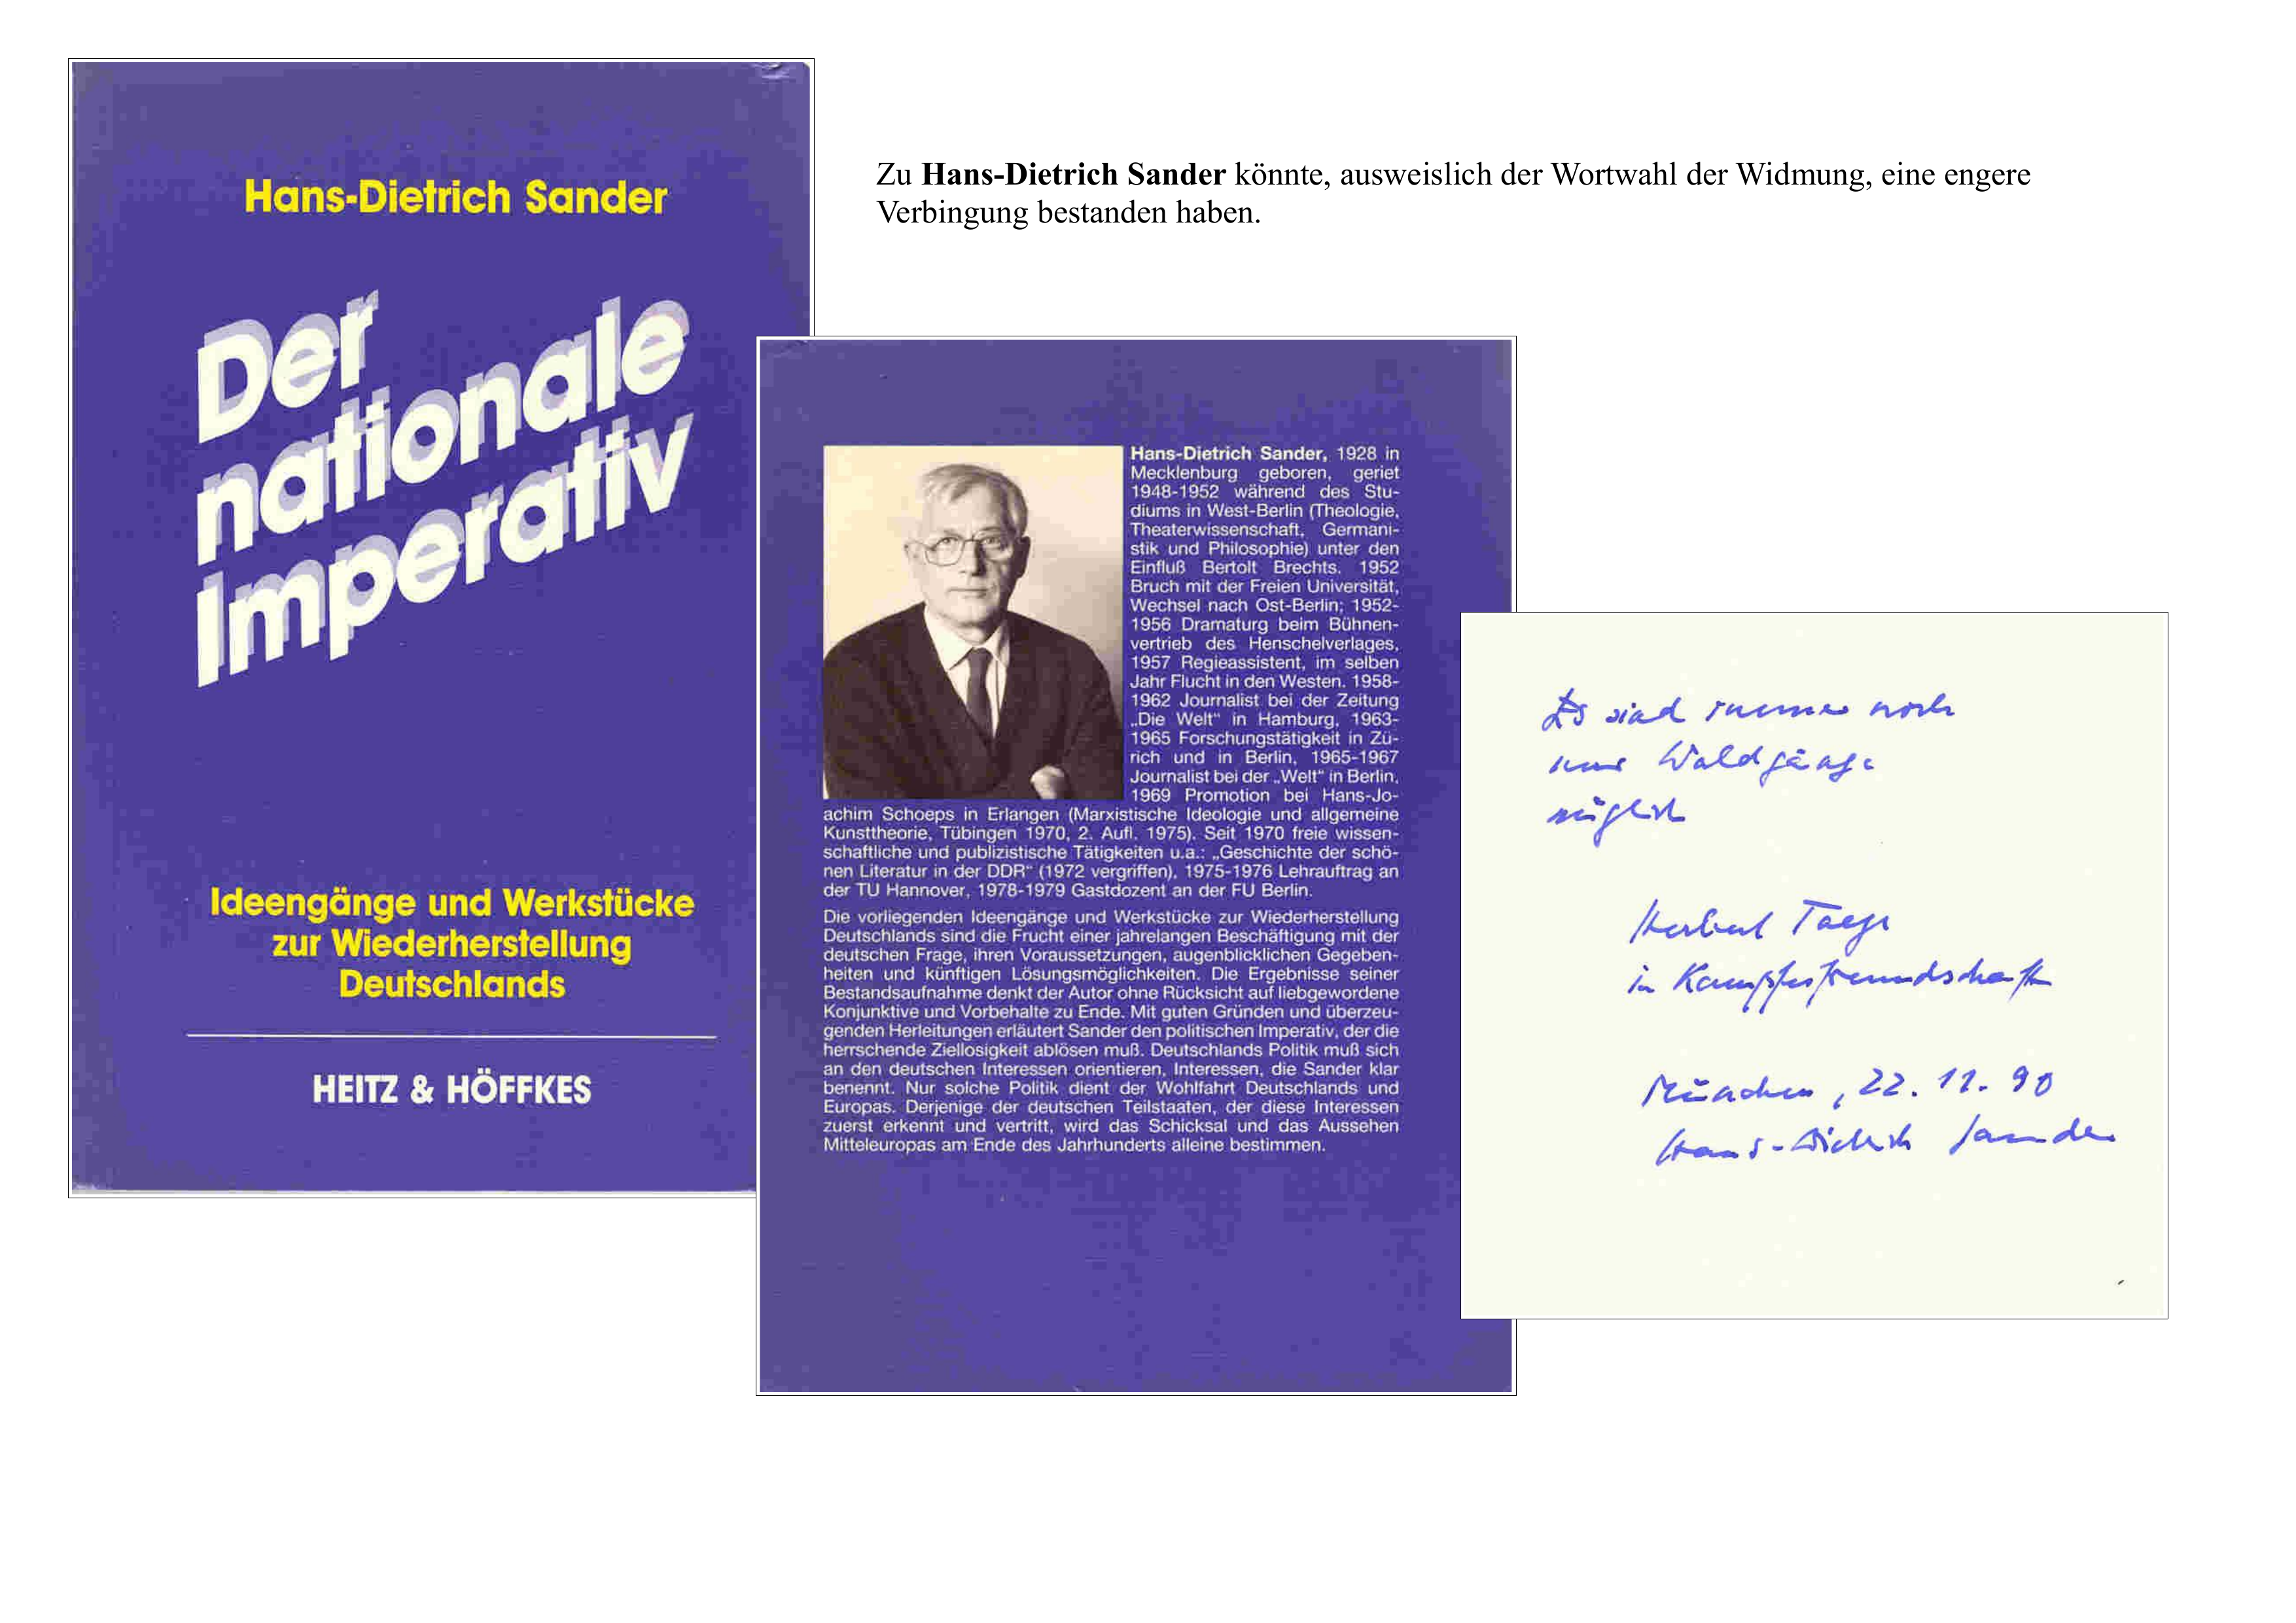 Zu Hans-Dietrich Sander könnte, ausweislich der Wortwahl der Widmung, eine engere
Verbingung bestanden haben.
Hans-Dietrich Sander
Der
nationale
Imperativ
Ideengänge und Werkstücke
zur Wiederherstellung
Deutschlands
HEITZ & HÖFFKES
Hans-Dietrich Sander, 1928 in
Mecklenburg geboren, geriet
1948-1952 während des Stu-
diums in West-Berlin (Theologie,
Theaterwissenschaft, Germani-
stik und Philosophie) unter den
Einfluß Bertolt Brechts. 1952
Bruch mit der Freien Universität,
Wechsel nach Ost-Berlin; 1952-
1956 Dramaturg beim Bühnen-
vertrieb des Henschelverlages,
1957 Regieassistent, im selben
Jahr Flucht in den Westen. 1958-
1962 Journalist bei der Zeitung
„Die Welt“ in Hamburg, 1963-
1965 Forschungstätigkeit in Zü-
rich und in Berlin, 1965-1967
Journalist bei der „Welt“ in Berlin,
1969 Promotion bei Hans-Jo-
achim Schoeps in Erlangen (Marxistische Ideologie und allgemeine
Kunsttheorie, Tübingen 1970, 2. Aufl. 1975). Seit 1970 freie wissen-
schaftliche und publizistische Tätigkeiten u.a.: „Geschichte der schö-
nen Literatur in der DDR“ (1972 vergriffen), 1975-1976 Lehrauftrag an
der TU Hannover, 1978-1979 Gastdozent an der FU Berlin.
Die vorliegenden Ideengänge und Werkstücke zur Wiederherstellung
Deutschlands sind die Frucht einer jahrelangen Beschäftigung mit der
deutschen Frage, ihren Voraussetzungen, augenblicklichen Gegeben-
heiten und künftigen Lösungsmöglichkeiten. Die Ergebnisse seiner
Bestandsaufnahme denkt der Autor ohne Rücksicht auf liebgewordene
Konjunktive und Vorbehalte zu Ende. Mit guten Gründen und überzeu-
genden Herleitungen erläutert Sander den politischen Imperativ, der die
herrschende Ziellosigkeit ablösen muß. Deutschlands Politik muß sich
an den deutschen Interessen orientieren, Interessen, die Sander klar
benennt. Nur solche Politik dient der Wohlfahrt Deutschlands und
Europas. Derjenige der deutschen Teilstaaten, der diese Interessen
zuerst erkennt und vertritt, wird das Schicksal und das Aussehen
Mitteleuropas am Ende des Jahrhunderts alleine bestimmen.
Es sind immer noch
nur Waldgänge
möglich
Herbert Taege
in Kampfesfreundschaft
München, 22. 11. 90
Hans-Dietrich Sander